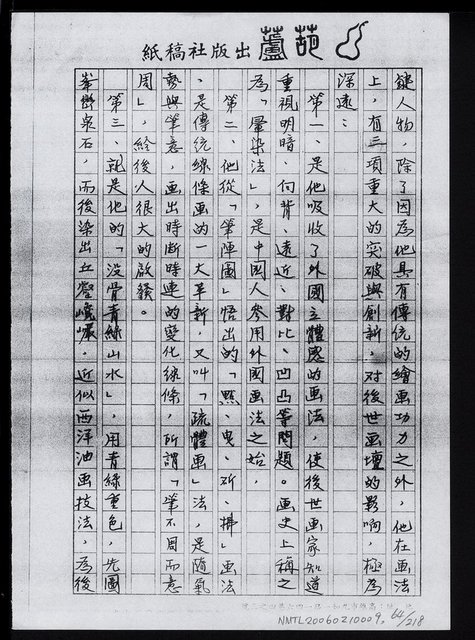 葫蘆出版社稿紙
鍵人物，除了因為他具有傳統的繪畫功力之外，他在畫法
上，有三項重大的突破與創新，对後世畫壇的影响，極為
深遠：
第一、是他吸收了外國立體感的画法，使後世画家知道
重視明暗、向背、遠近、對比、凹凸等問題。画史上稱之
為「暈染法」，是中國人參用外國画法之始，
第二、他從「筆陣圖」悟出的「點、曳、斫、拂」画法
、是傳統線條画的一大革新，又叫「疏體画」法，是随氣
勢與筆意，画出時断時連的變化線條，所謂「筆不周而意
周」，給後人很大的啟發。
第三、就是他的「没骨青綠山水」，用青綠重色，先圖
峯巒泉石，而後染出丘壑巉巖，近似西洋油画技法，為後
NMTL20060210009, 64/218